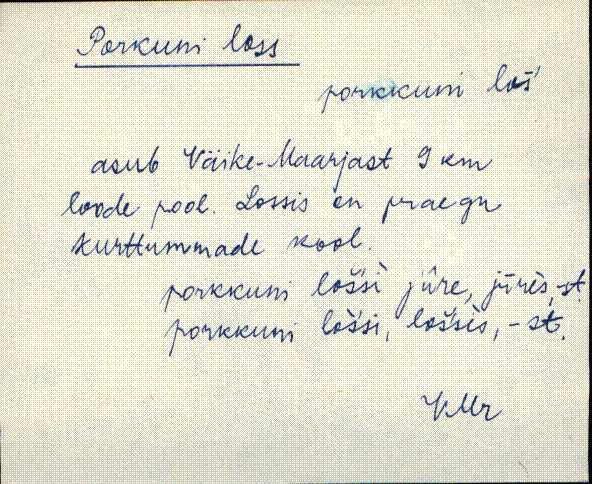 Porkuni loss
porkkuni loš'
asub Väike-Maarjast 9 km
loode pool. Lossis on praegu
kurttummade kool.
porkkuni lošsi jûre, jûrès, -st.
porkkuni lošsi, lošsis, -st.
VMr